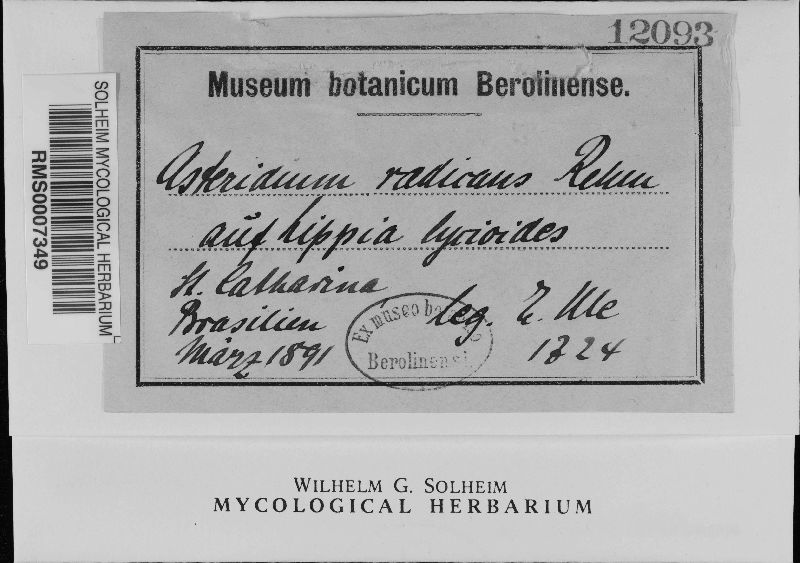 12093
Museum botanicum Berolinense.
Asteridium radicans Rehm
auf Lippia lycioides
St. Catharina
Brasilien
März 1891
leg. E. Ule
1724
Ex museo botanico
Berolinensi
SOLHEIM MYCOLOGICAL HERBARIUM
RMS0007349
WILHELM G. SOLHEIM
MYCOLOGICAL HERBARIUM